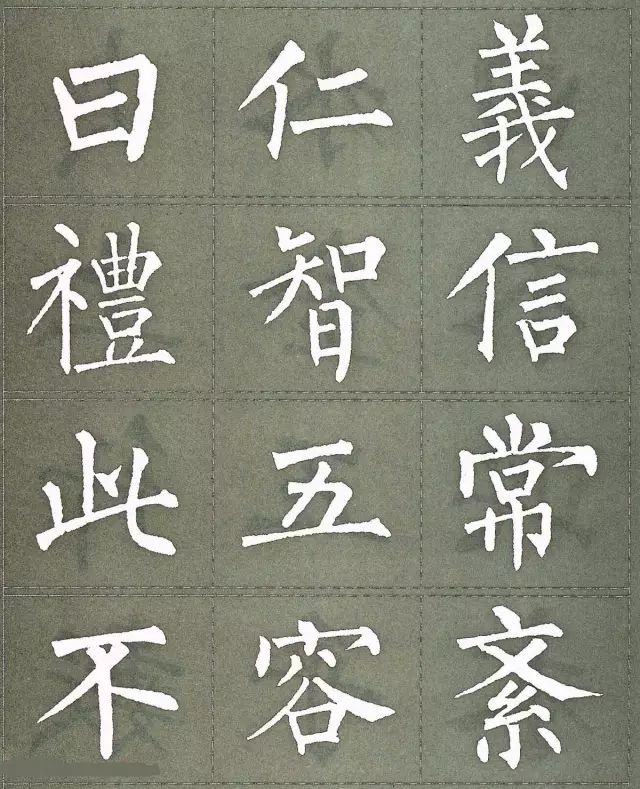 曰仁義
禮智信
此五常
不容紊